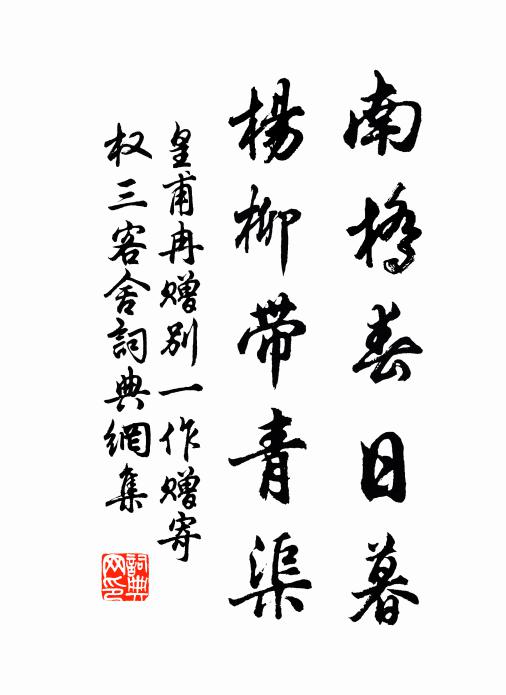 南橋春日暮
楊柳帶青渠
皇甫冉贈別一作贈寄
权三客舍詞典網集
詞典网印